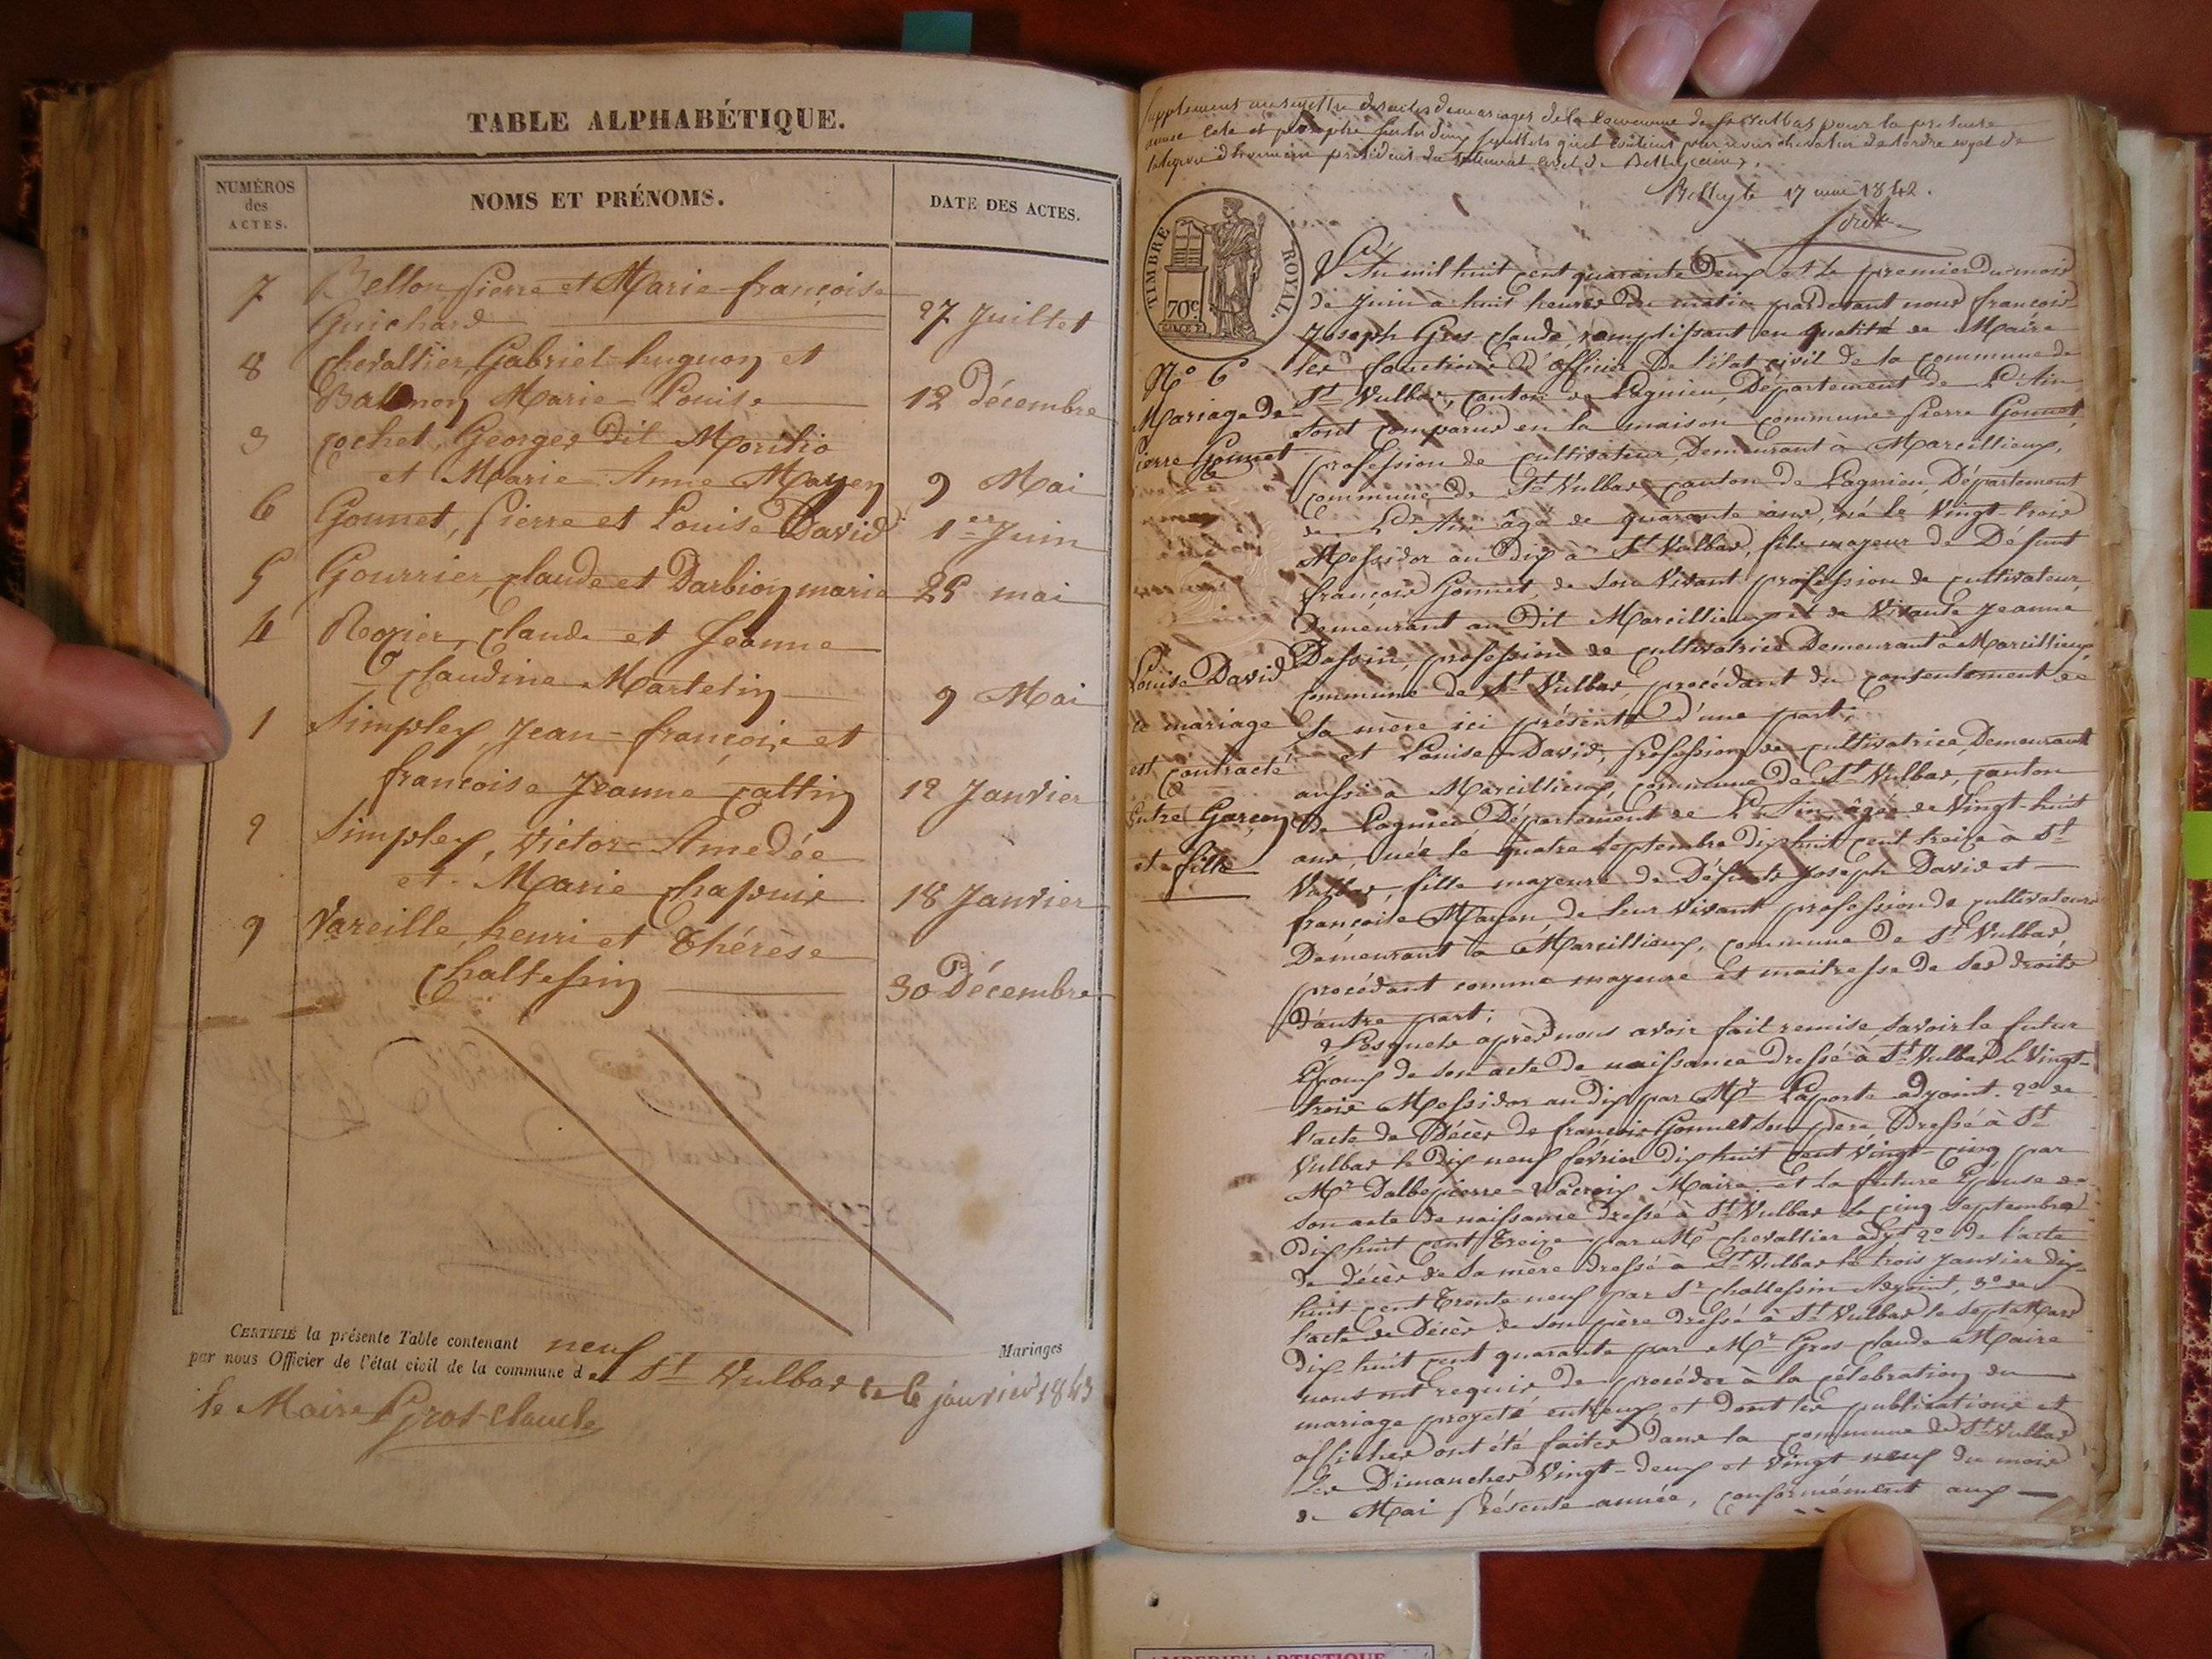 TABLE ALPHABÉTIQUE.
NUMÉROS des ACTES.
NOMS ET PRÉNOMS.
DATE DES ACTES.
7 Bellon, pierre et Marie-françoise
Guichard 27 Juillet
8 chevallier, Gabriel-hugnon et
Marie-Louise 12 décembre
3 cochet, George dit
et Marie-Anne Mayen 9 Mai
6 Gonnet, Pierre et Louise David 1er Juin
5 Gourrier, claude et Darbion marie 25 mai
4 Rogier, claude et Jeanne
claudine Martelin 9 Mai
1 Simplex, Jean-françois et
francoise Jeanne cattin 12 Janvier
2 Simplex, victor-Amedée
et Marie chapuis 18 Janvier
9 Vareille, henri et Thérèse
Chaltessin 30 Décembre
CERTIFIÉ la présente Table contenant neuf Mariages
par nous Officier de l'état civil de la commune de St Vulbas ce 6 janvier 1843
le Maire Gros-Claude
Supplement au registre des actes de mariages de la commune de St Vulbas pour la presente
annee
president du tribunal civil de Belley
Belley le 17 mai 1842.
TIMBRE ROYAL.
70c
L'An mil huit cent quarante deux et le premier du mois
de juin à huit heures du matin pardevant nous françois
joseph Gros-claude, remplissant en qualité de Maire
les fonctions d'officier de l'état civil de la commune de
St Vulbas, canton de Lagnieu, Département de L'Ain
sont comparus en la maison commune Pierre Gonnet,
profession de cultivateur, Demeurant à Marcillieux,
commune de St Vulbas, canton de Lagnieu, Département
de L'Ain âgé de quarante ans, né le Vingt-trois
Messidor an Dix à St Vulbas, fils majeur de Défunt
françois Gonnet, de son vivant profession de cultivateur,
Demeurant au dit Marcillieux et de Vivante jeanne
profession de cultivatrice Demeurant à Marcillieux,
commune de St Vulbas, procédant du consentement de
Sa mère ici présente D'une part;
et Louise David, profession de cultivatrice, Demeurant
aussi à Marcillieux, commune de St Vulbas, canton
de Lagnieu Département de L'Ain, âgée de Vingt-huit
ans, née le quatre septembre dix huit cent treize à St
Vulbas, fille majeure de Défunts Joseph David et
françoise Mayen, de leur vivant profession de cultivateurs
Demeurant à Marcillieux, commune de St Vulbas,
procédant comme majeure et maitresse de ses droits
D'autre part;
Lesquels après nous avoir fait remise, savoir le futur
Époux de son acte de naissance dressé à St Vulbas le Vingt-
trois Messidor an dix par Mr Laporte adjoint. 2o de
l'acte de Décès de françois Gonnet son père Dressé à St
Vulbas le Dix neuf février dix huit cent vingt-cinq par
Mr Dalbepierre-Lacroix Maire, et la future Épouse de
son acte de naissance dressé à St Vulbas le cinq Septembre
Dix huit cent treize par Mr chevallier adjt 2o de l'acte
de décès de sa mère dressé à St Vulbas le trois Janvier dix
huit-cent trente neuf par Sr chaltessin Adjoint, 3o de
l'acte de Décès de son père dressé à St Vulbas le sept Mars
dix-huit cent quarante par Mr Gros-claude Maire
nous ont requis de procéder à la célebration du
mariage projeté entreux, et dont les publications et
affiches ont été faites dans la commune de St Vulbas
Les Dimanches Vingt-deux et Vingt neuf du mois
de Mai Présente année, conformément aux
No 6
Mariage de
Pierre Gonnet
&
Louise David
ce mariage
est contracté
&
Entre Garçon
et fille